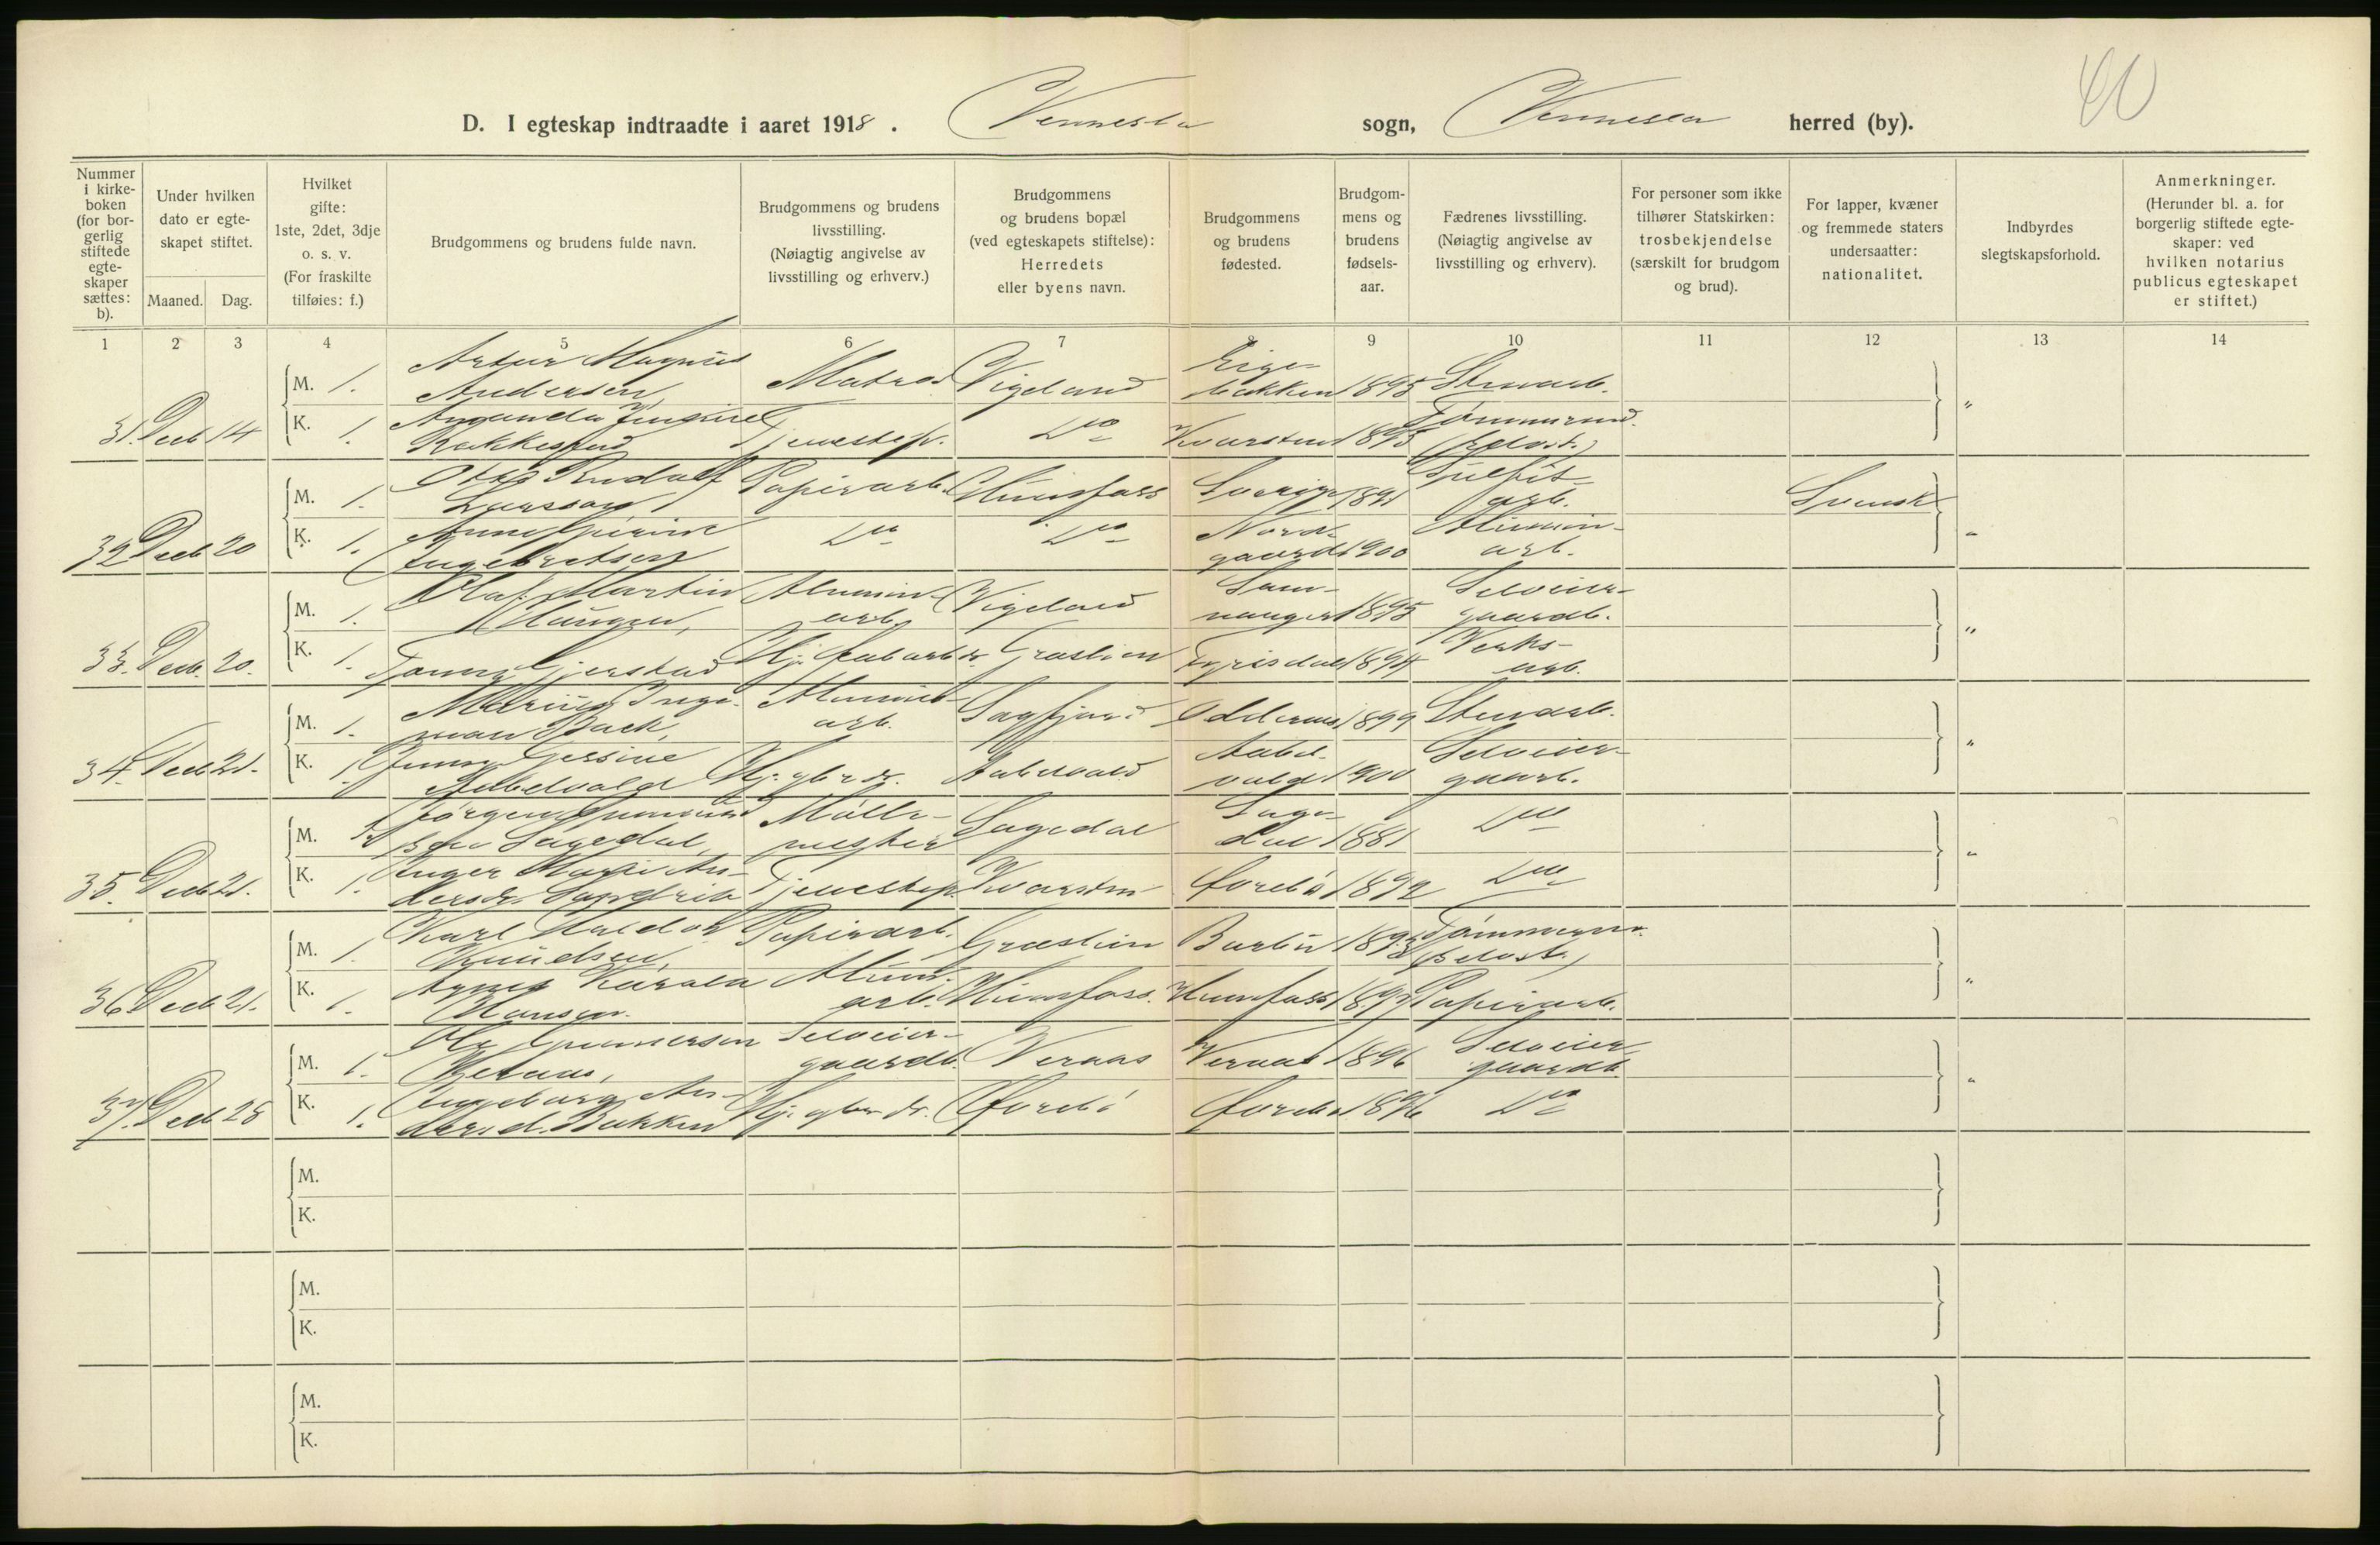 40
D. I egteskap indtraadte i aaret 1918. Vennesla sogn, Vennesla herred (by).
Nummer i kirkeboken (for borgerlig stiftede egteskaper sættes: b).
Under hvilken dato er egteskapet stiftet.
Maaned. Dag.
Hvilket gifte: 1ste, 2det, 3dje o. s. v. (For fraskilte tilføies: f.)
Brudgommens og brudens fulde navn.
Brudgommens og brudens livsstilling. (Nøiagtig angivelse av livsstilling og erhverv.)
Brudgommens og brudens bopæl (ved egteskapets stiftelse): Herredets eller byens navn.
Brudgommens og brudens fødested.
Brudgommens og brudens fødselsaar.
Fædrenes livsstilling. (Nøiagtig angivelse av livsstilling og erhverv).
For personer som ikke tilhører Statskirken: trosbekjendelse (særskilt for brudgom og brud).
For lapper, kvæner og fremmede staters undersaatter: nationalitet.
Indbyrdes slegtskapsforhold.
Anmerkninger. (Herunder bl. a. for borgerlig stiftede egteskaper: ved hvilken notarius publicus egteskapet er stiftet.)
1 2 3 4 5 6 7 8 9 10 11 12 13 14
31. Decb 14 M. 1. Artur Magnus Andersen, Matros Vigeland Eigebakken 1895 Stenarb. "
K. 1. Amanda Jensine Rakkestad Tjenestep. Do Kvarstein 1895
32 Decb 20 M. 1. Otto Rudolf Larsson, Papirarb. Hunsfoss Sverige 1891 Sulfitarb. Svensk "
K. 1. Anne Gurine Engebretsen Do Do Nordgaard 1900 Alumin-arb.
33. Decb. 20. M. 1. Olaf Martin Haugen, Alumin-arb. Vigeland Samnanger 1895 Selveier-gaardb. "
K. 1. Tomine Gjerstad Hj. fabarb. dr. Græslien Fyrisdal 1894 Verks-arb.
34. Decb 21. M. 1. Marius Ingeman Back, Alumin-arb. Sagfjord Oddernes 1899 Stenarb. "
K. 1. Jenny Gessine Aabelvold Hj. gbr. dr. Aabelvold Aabelvold 1900 Selveier-gaarb.
35. Decb 21. M. Jørgen Gunvald Sagedal, Møllemester Sagedal Sagedal 1881 Do "
K. 1. Inger Marie Andersdr. Tjenestep. Kvarstein Grebø 1892 Do
36 Decb 21. M. 1. Karl Haldor Knudsen, Papirarb. Græslien Barbu 1893
K. 1. Agnes Karola Hansen. Alumin. arb. Hunsfoss. Hunsfoss 1897 Papirarb. "
37. Decb 28 M. 1. Ole Gunnersen Veraas, Selveier-gaardb. Veraas Veraas 1896 Selveier gaardb. "
K. 1. Ingeborg Andersd. Bakken Hj. gbr. dr. Grebø Grebø 1896 Do
M.
K.
M.
K.
M.
K.